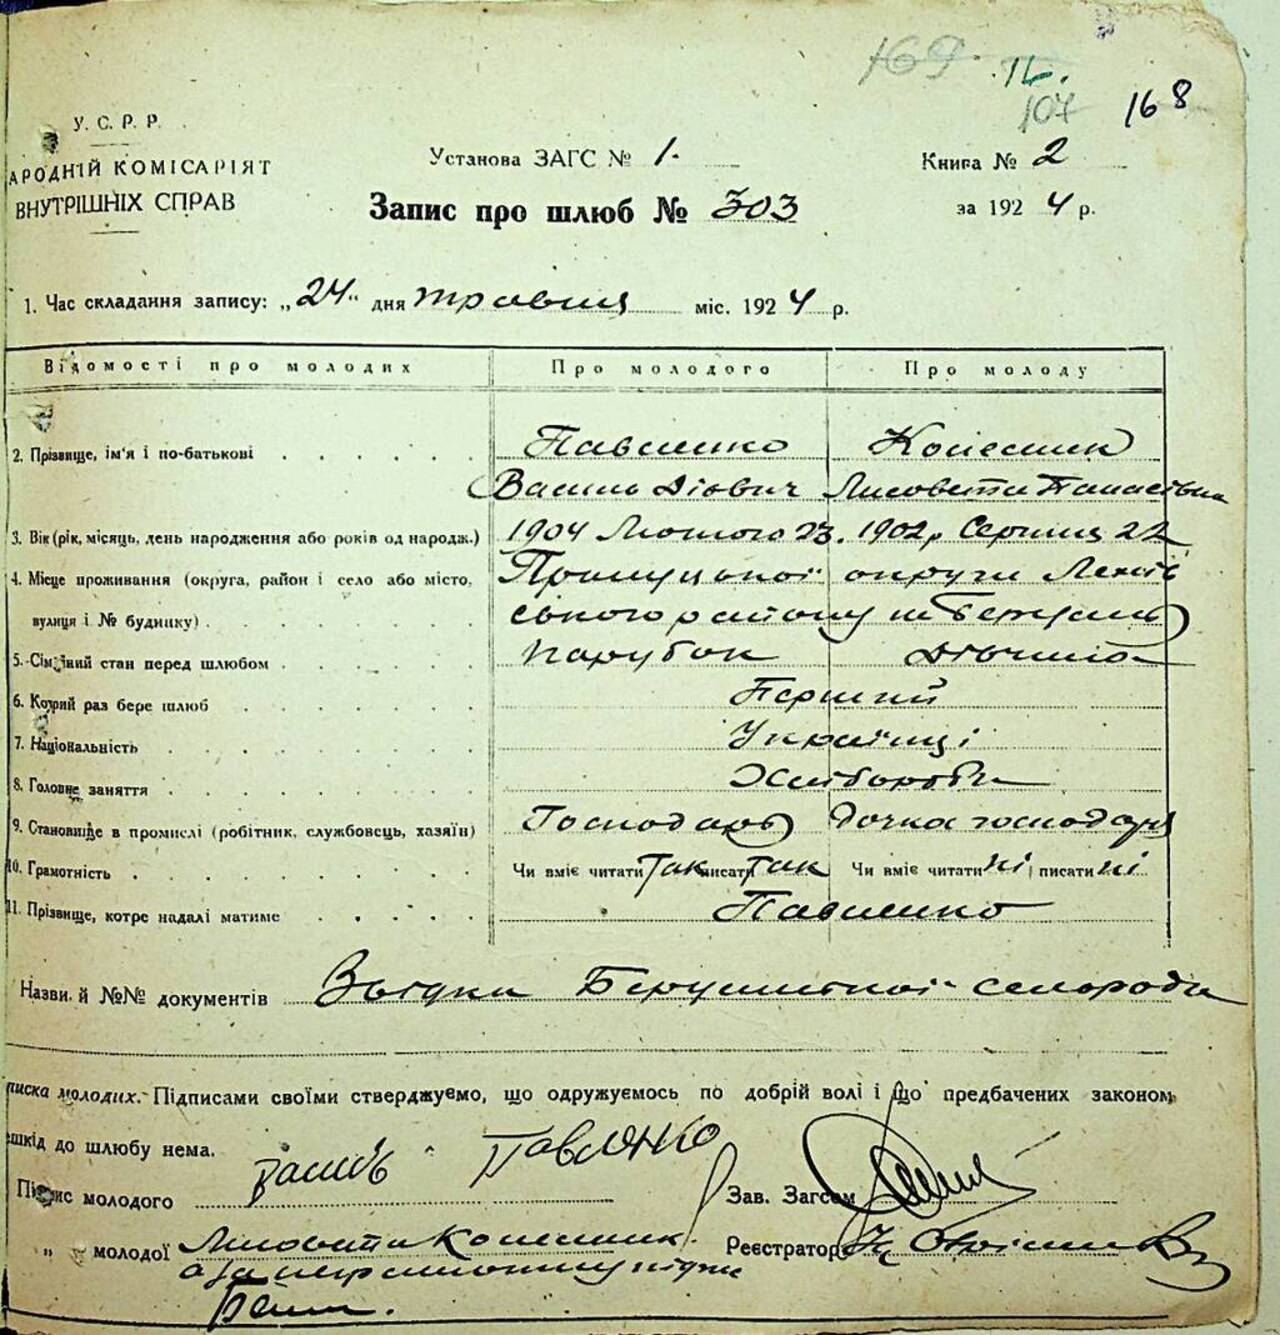 169 12.
107 168
У. С. Р. Р.
АРОДНІЙ КОМІСАРІЯТ
ВНУТРІШНІХ СПРАВ
Установа ЗАГС № 1.
Книга № 2
Запис про шлюб № 303
за 1924 р.
1. Час складання запису: „24“ дня травня міс. 1924 р.
Відомості про молодих Про молодого Про молоду
2. Прізвище, ім'я і по-батькові Павленко Колесник
Василь Дізович Лисовета Панасівна
3. Вік (рік, місяць, день народження або років од народж.) 1904 Лютого 23. 1902 р Серпня 22
4. Місце проживання (округа, район і село або місто, Прилуцької округи
вулиця і № будинку) ського району
5. Сімейний стан перед шлюбом парубок дівчина
6. Котрий раз бере шлюб Перший
7. Національність Українці
8. Головне заняття Хлібороби
9. Становище в промислі (робітник, службовець, хазяїн) Господарь Дочка господаря
10. Грамотність Чи вміє читати так писати так Чи вміє читати ні писати ні
11. Прізвище, котре надалі матиме Павленко
Назви й №№ документів сельради
писка молодих. Підписами своїми стверджуємо, що одружуємось по добрій волі і що предбачених законом
ешкід до шлюбу нема.
Підпис молодого Василь Павленко Зав. Загсом
„ молодої Лисовета Колесник Реєстратор